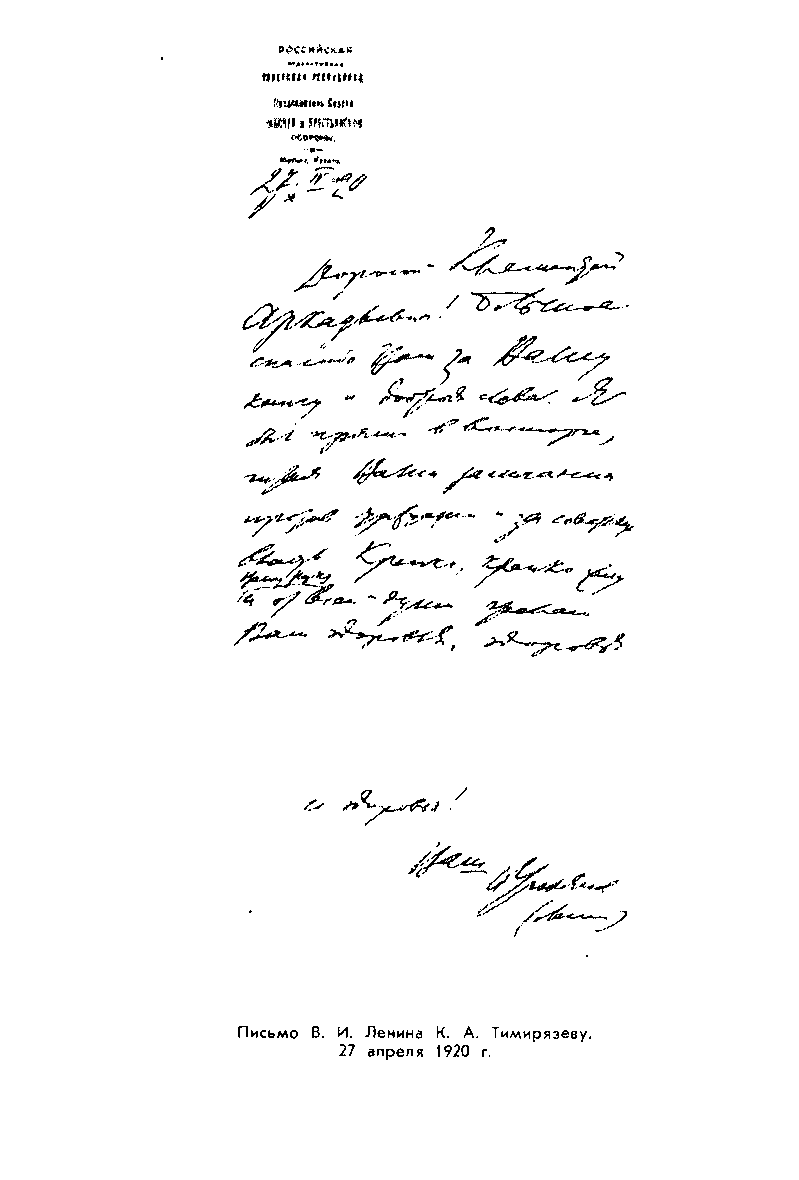 РОССИЙСКАЯ
ФЕДЕРАТИВНАЯ
СОВЕТСКАЯ РЕСПУБЛИКА
Председатель Совета
РАБОЧЕЙ и КРЕСТЬЯНСКОЙ
ОБОРОНЫ.
Москва, Кремль
27. IV. 1920
Дорогой Клементий
Аркадьевич! Большое
спасибо Вам за Вашу
книгу и добрые слова. Я
был прямо в восторге,
читая Ваши замечания
против буржуазии и за Советскую
власть. Крепко, крепко жму
Вашу руку
и от всей души желаю
Вам здоровья, здоровья
и здоровья!
Ваш В. Ульянов
(Ленин)
Письмо В. И. Ленина К. А. Тимирязеву.
27 апреля 1920 г.